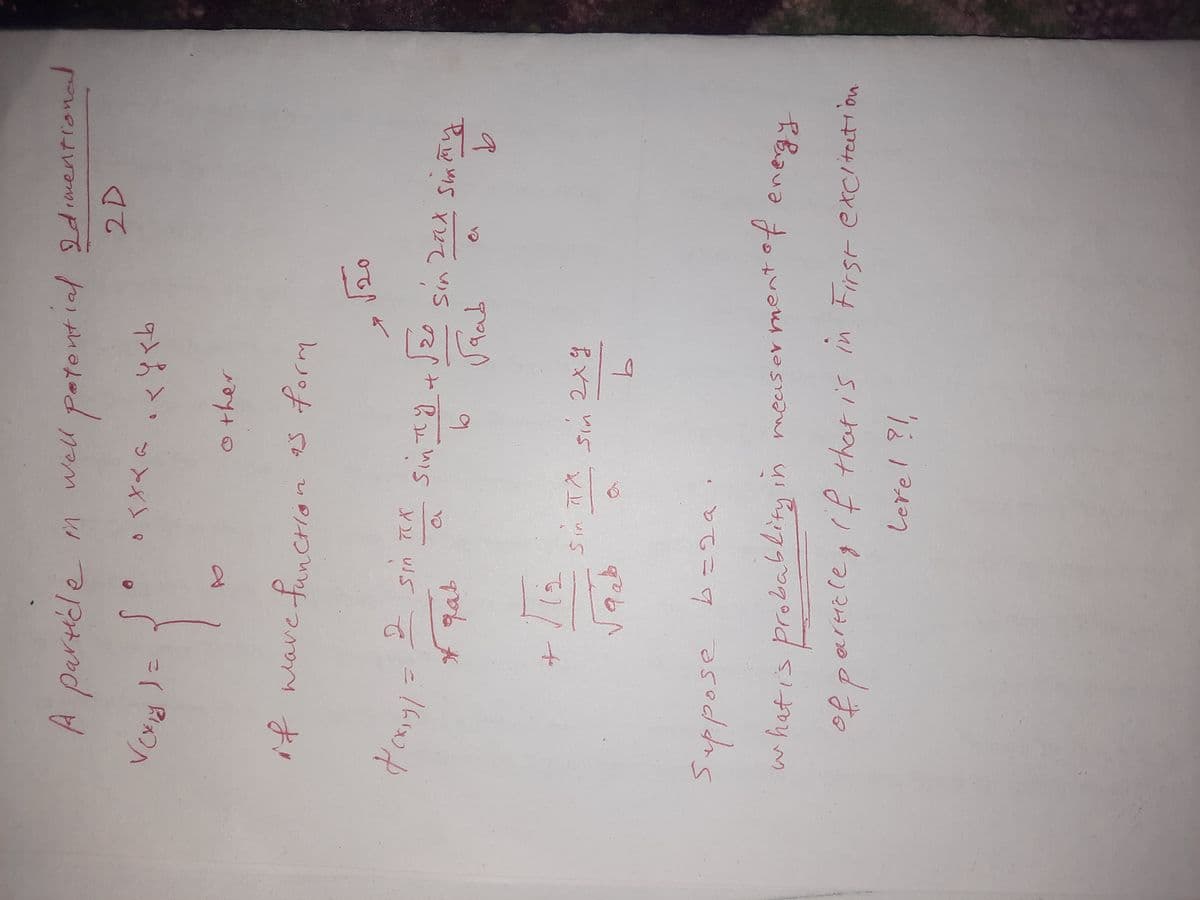 A particle in well potential 2dimentional
2D
V(x,y) = { 0   0<x<a   0<y<b
∞   other
if wave function as form
√20
ψ(x,y) = 2/√9ab sin πx/a sin πy/b + √20/√9ab sin 2πx/a sin πy/b
+ √12/√9ab sin πx/a sin 2xy/b
Suppose b=2a.
what is probablity in measerment of energy
of particle, if that is in First excitation
Level?!